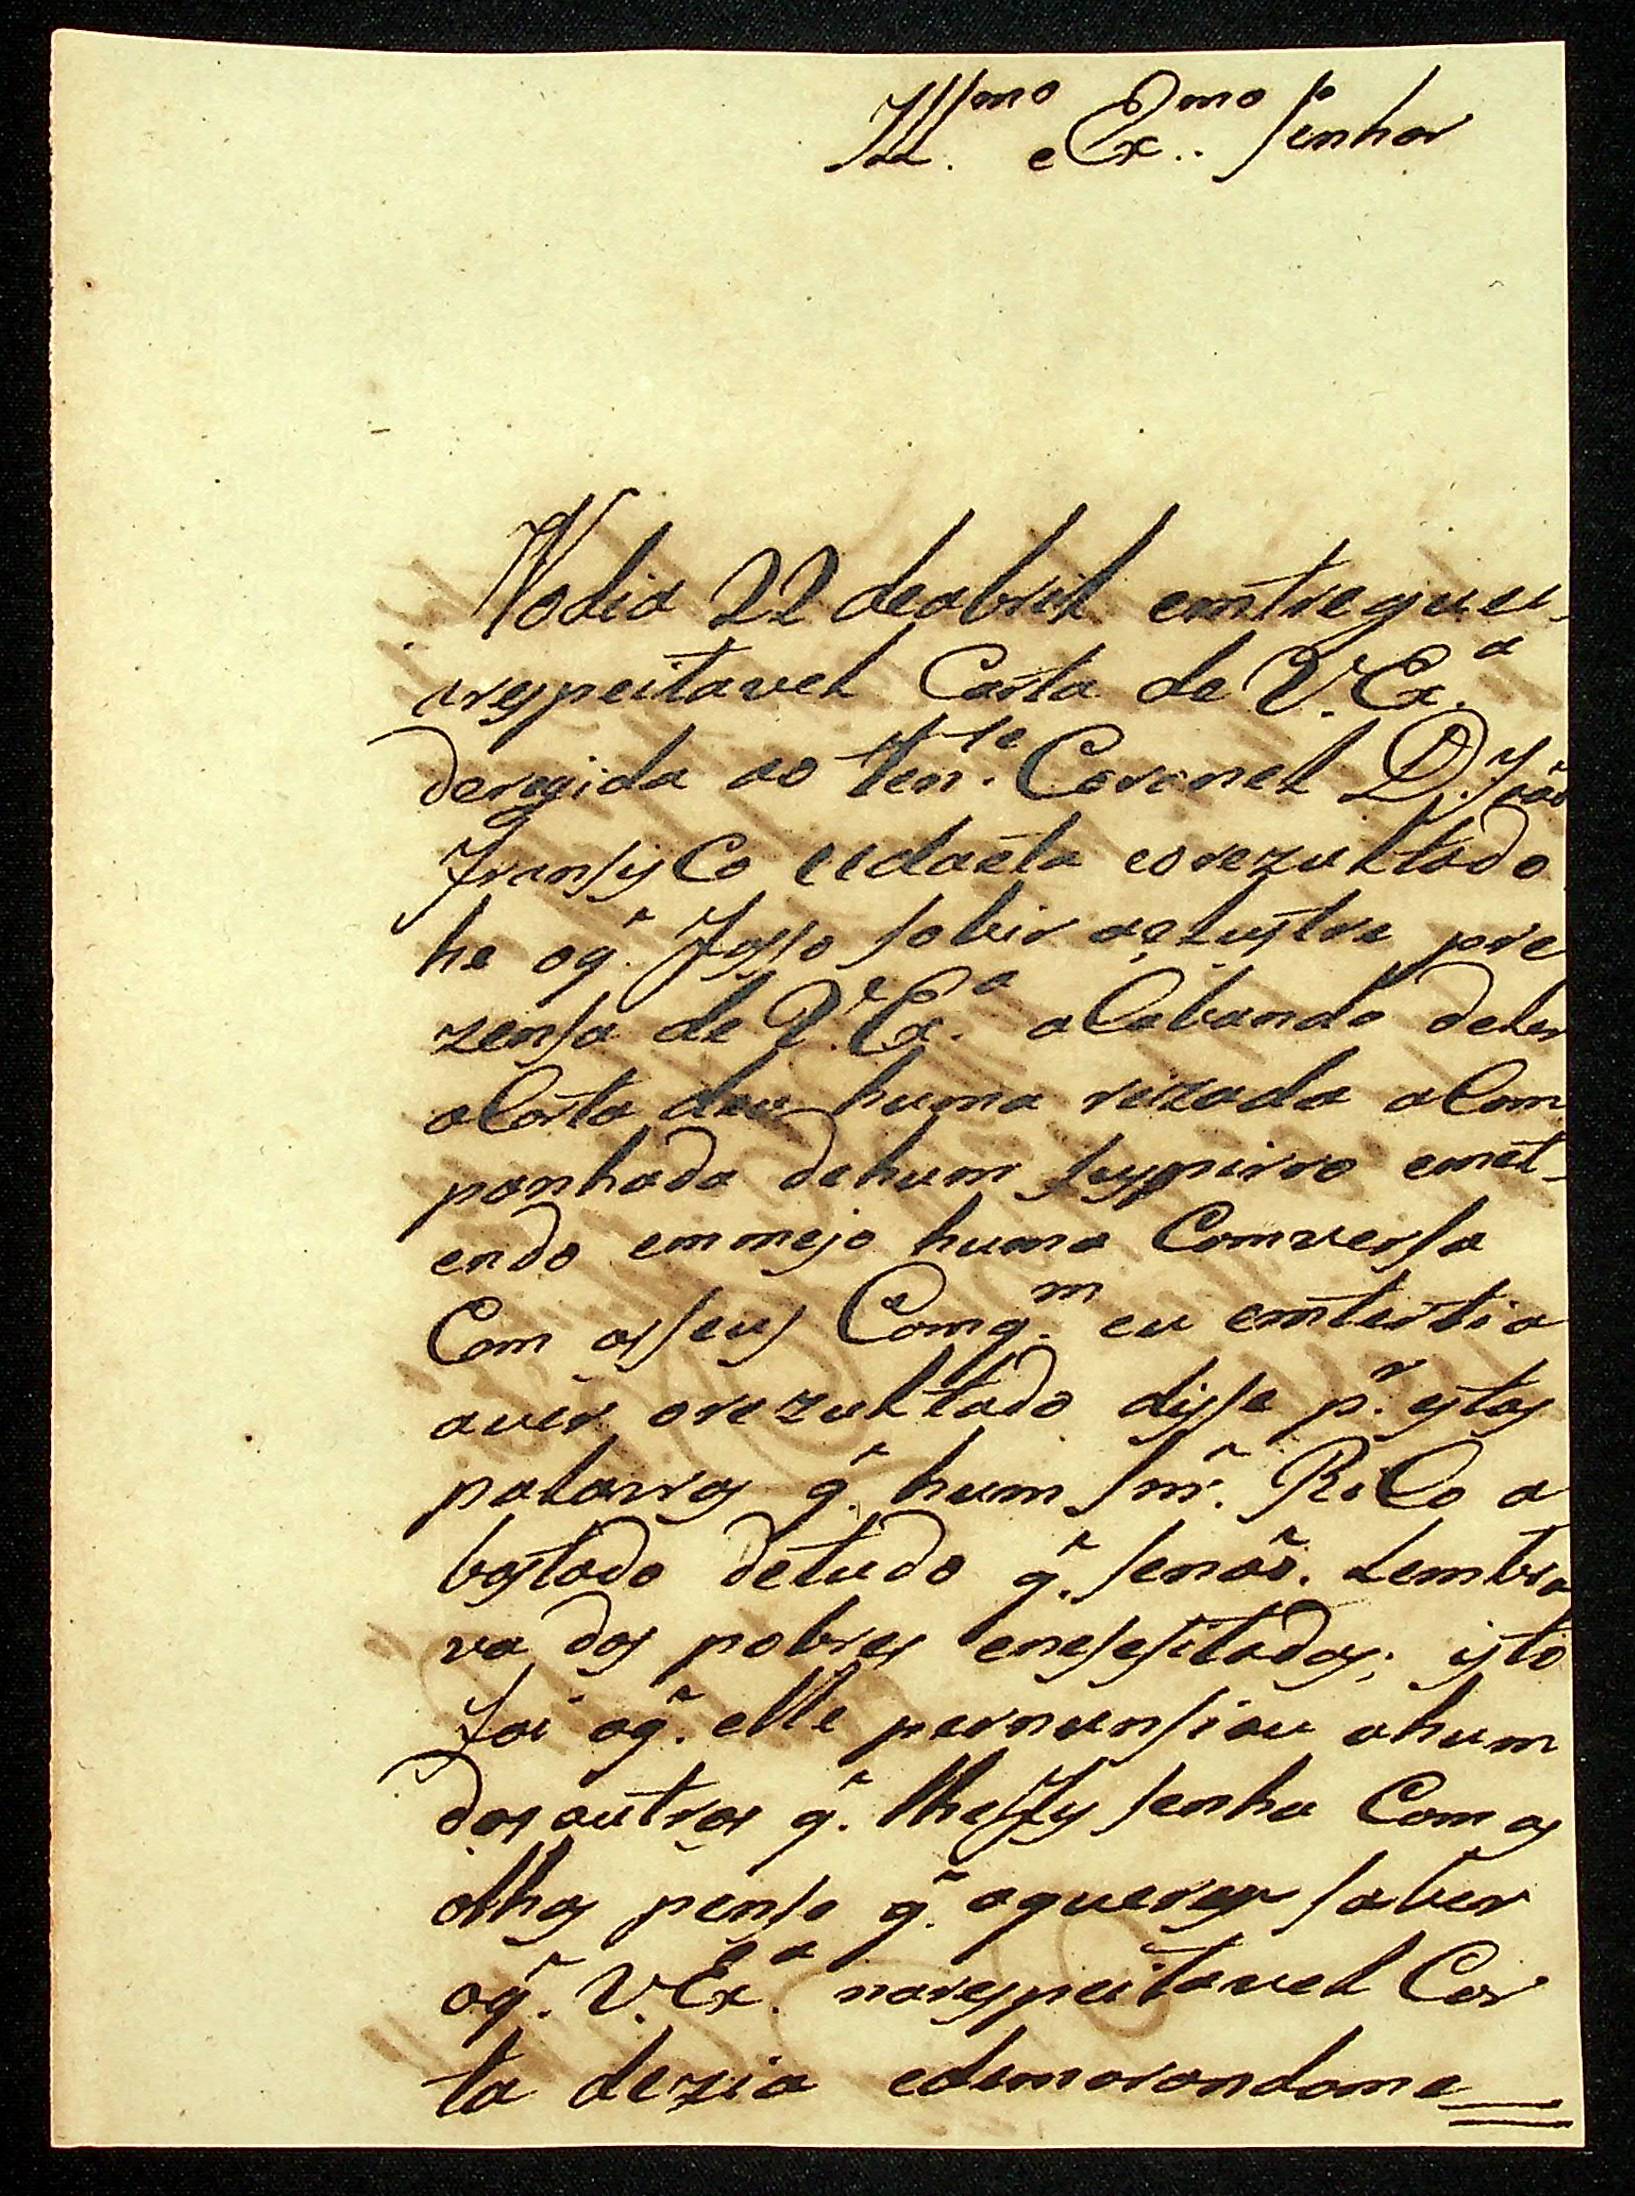 Ill.mo e Ex.mo Senhor
Nodia 22 deabril emtreguei
respeitavel Carta de V. Ex.a
deregida ao Ten.te Coronel D. João
Fransysco udaeta eorezultado
he oq̃. Fasso sobir aelustre pre
zensa de V. Ex.a aCabando deler
aCarta deu huma rizada aCom
panhada dehum suspirro emet-
endo emmejo huma Comversa
Com osseus Comq.m eu emtertia
aver orezultado disse p.r estas
palavras q̃. hum snr̃. RiCo a
bastado detudo q̃. senaõ. Lembra
va dos pobres enesesitados; isto
foi oq̃. elle pernunsiou ahum
dos outros q̃. lhesfes senha Com os
olhos penso q̃. aquerer saber
oq̃. V. Ex.a narespeitavel Car
ta dezia edemorandome